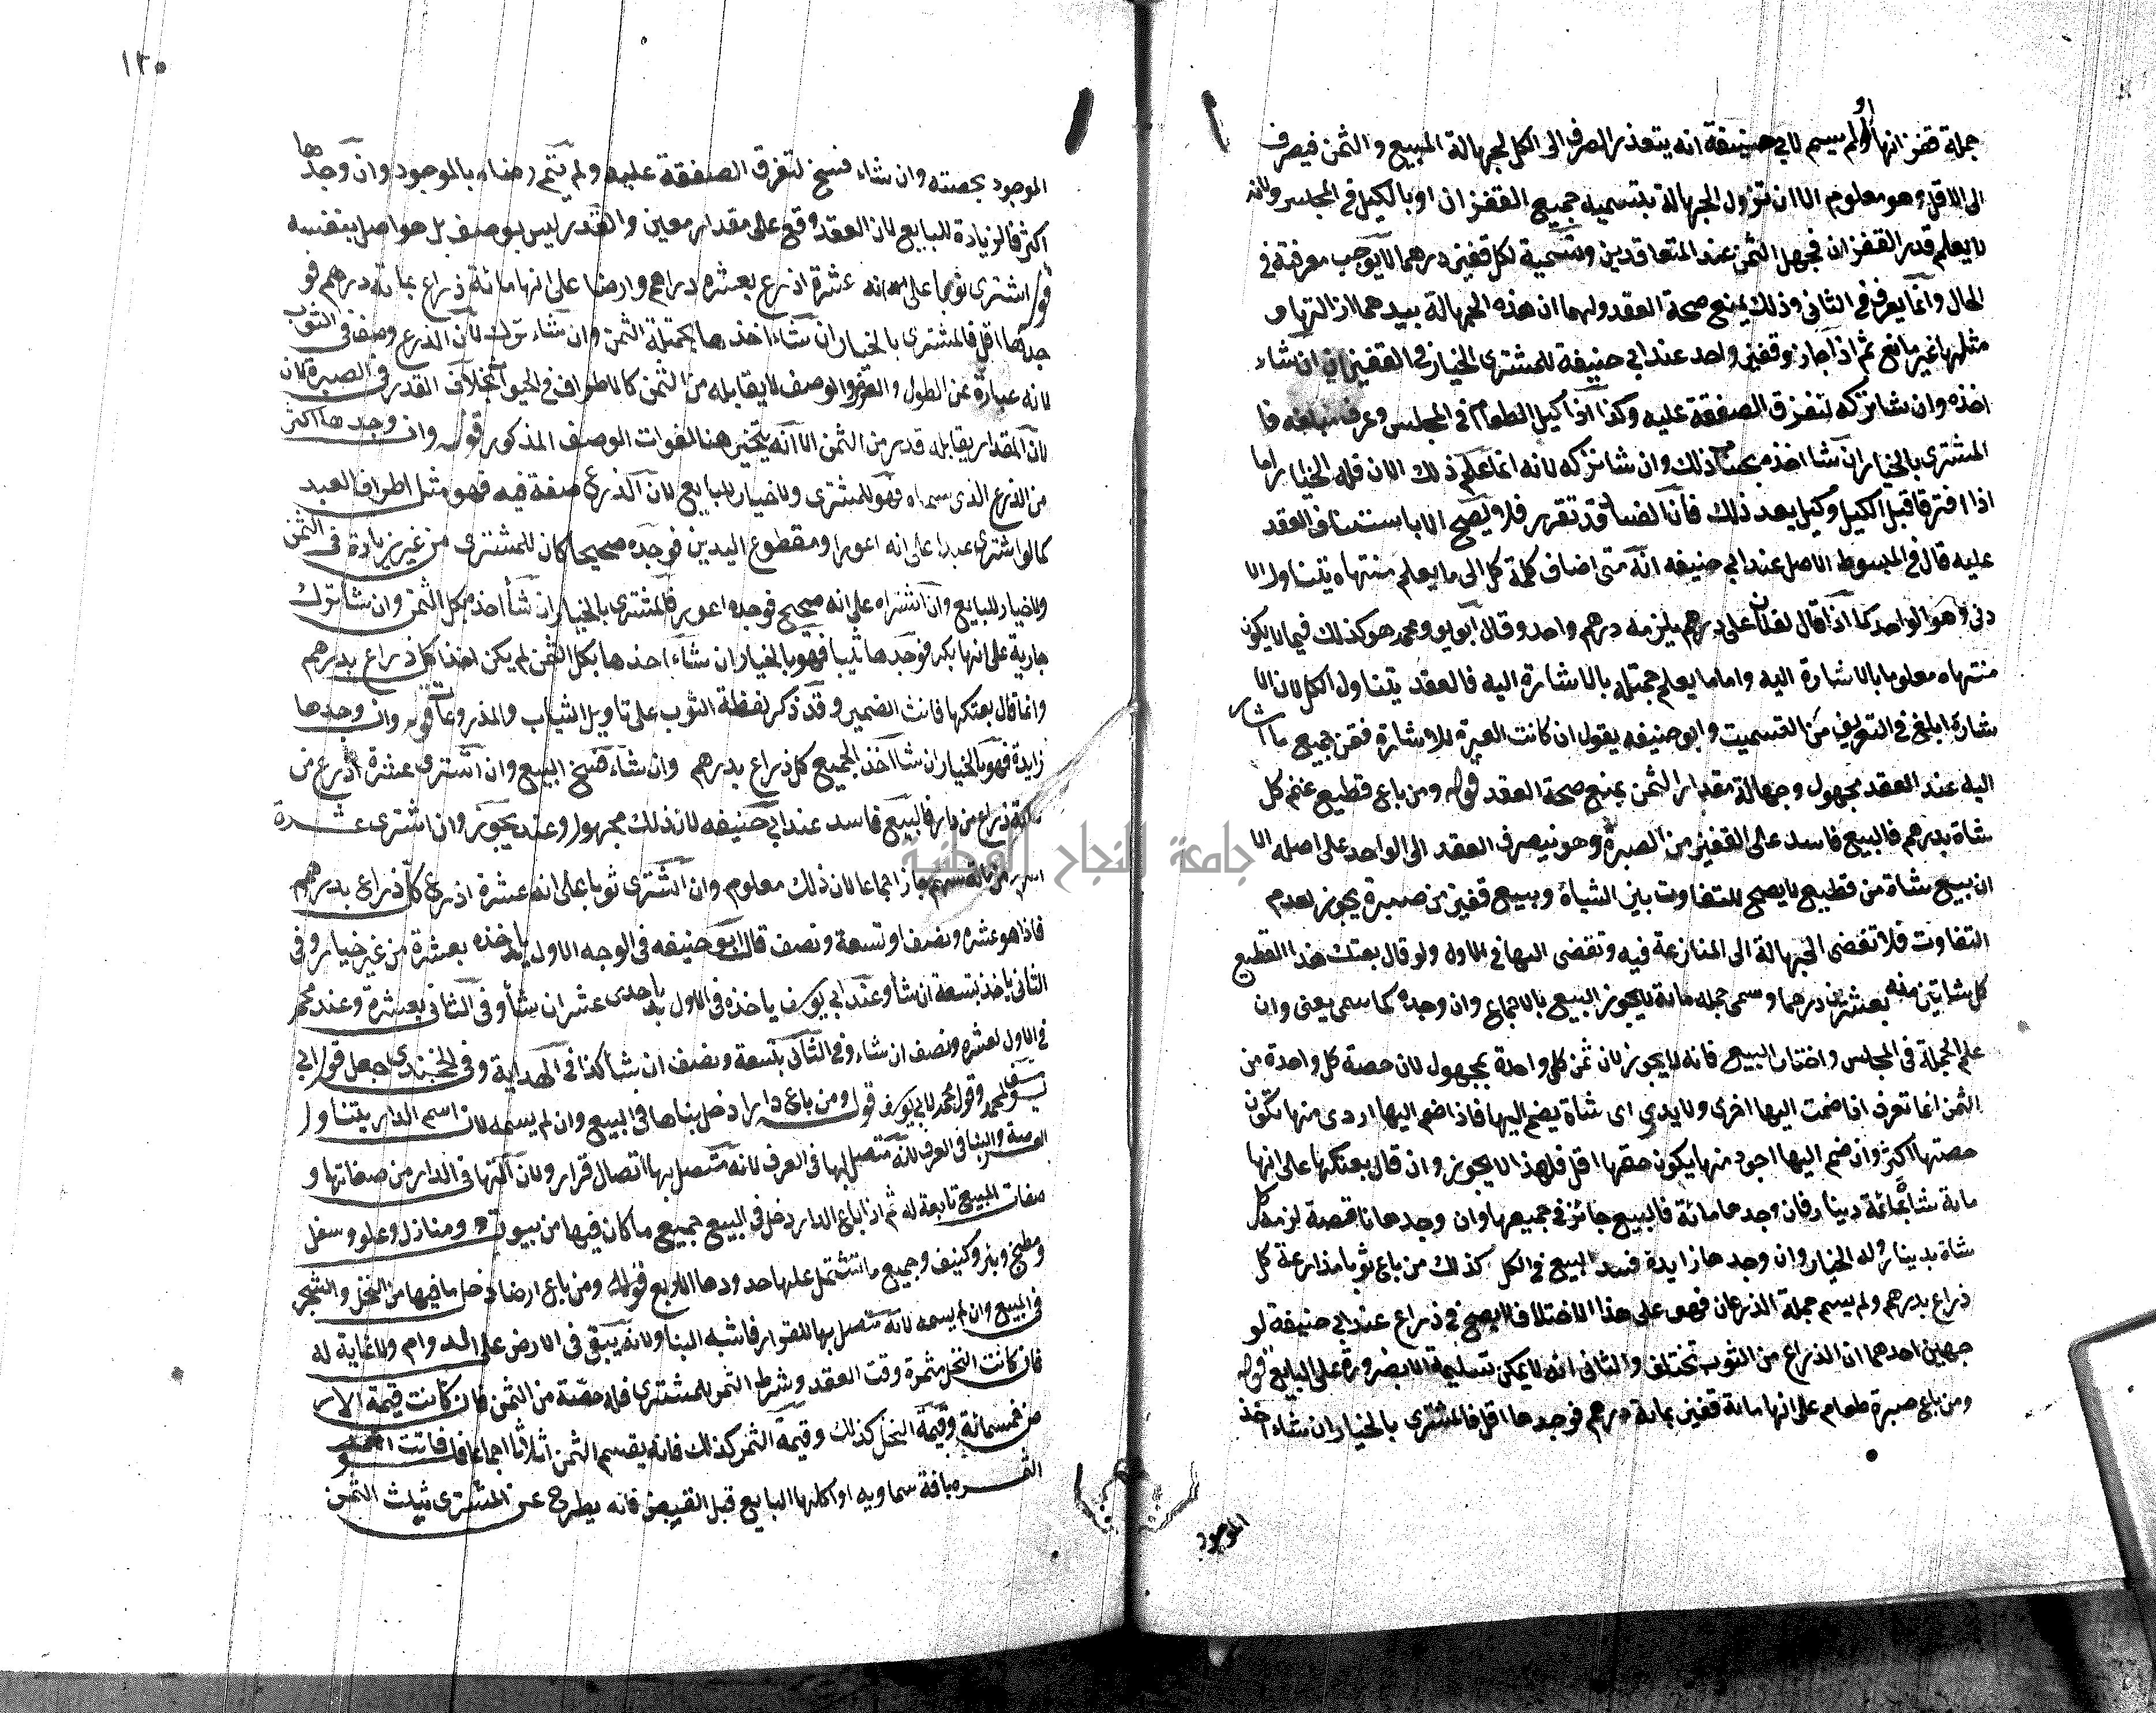 جملة قفزانها أو لم يسم لابي حنيفة انه يتعذر الصرف الى الكل لجهالة المبيع والثمن فيصرف
الى الاقل وهو معلوم الا ان تزول الجهالة بتسمية جميع القفزان او بالكيل في المجلس ولانه
لا يعلم قدر القفزان فجهل الثمن عند المتعاقدين وتسمية لكل قفيز درهما لا يوجب معرفته في
الحال وانما يعرف في الثاني وذلك يمنع صحة العقد ولهما ان هذه الجهالة بيدهما ازالتها و
مثلها غير مانع ثم اذا جاز في قفيز واحد عند ابي حنيفة للمشتري الخيار في القفيز ان شاء
اخذه وان شا تركه لتفرق الصفقة عليه وكذا اذا كيل الطعام في المجلس وعرف مبلغه فا
المشتري بالخيار ان شا اخذه بحساب ذلك وان شا تركه لانه انما علم ذلك الان فله الخيار اما
اذا افترقا قبل الكيل وكيل بعد ذلك فان الفساد قد تقرر فلا يصح الا باستئناف العقد
عليه قال في المبسوط الاصل عند ابي حنيفه انه متى اضاف كلمة كل الى ما يعلم منتهاه يتناول الا
دنى وهو الواحد كما اذا قال لفلان على كل درهم يلزمه درهم واحد وقال ابو يو ومحمد هو كذلك فيما لا يكون
منتهاه معلوما بالاشارة اليه واما ما يعلم جملته بالاشارة اليه فالعقد يتناول الكل لان الا
شارة ابلغ في التعريف من التسميت وابو حنيفه يقول ان كانت العبرة للاشارة فثمن جميع ما اشار
اليه عند العقد مجهول وجهالة مقدار الثمن يمنع صحة العقد قوله ومن باع قطيع غنم كل
شاة بدرهم فالبيع فاسد على القفيز من الصبرة وهو يصرف العقد الى الواحد على اصله الا
ان بيع شاة من قطيع لا يصح للتفاوت بين الشياة وبيع قفيز من صبرة يجوز لعدم
التفاوت فلا تفضي الجهالة الى المنازعة فيه وتفضي اليها في الاول ولو قال بعتك هذا القطيع
كل شاتين منه بعشرين درهما وسمى جمله مائة لا يجوز البيع بالاجماع وان وجده كما سمى يعني وان
علم الجملة في المجلس واختار البيع فانه لا يجوز لان ثمن كل واحدة مجهول لان حصة كل واحدة من
الثمن انما تعرف اذا ضمت اليها اخرى ولا يدري اي شاة يضم اليها فاذا ضم اليها اردى منها تكون
حصتها اكثر وان ضم اليها اجود منها يكون حقها اقل فلهذا لا يجوز وان قال بعتكها على انها
مائة شاة بمائة دينار فان وجدها مائة فالبيع جائز في جميعها وان وجدها ناقصة لزمه كل
شاة بدينار وله الخيار وان وجدها زايدة فسد البيع في الكل كذلك من باع ثوبا مذارعة كل
ذراع بدرهم ولم يسم جملة الذرعان فهو على هذا الاختلاف لا يصح في ذراع عند ابي حنيفة لو
جهين احدهما ان الذراع من الثوب تختلف والثاني انه لا يمكن تسليمه الا بضرورة على البايع قوله
ومن باع صبرة طعام على انها مائة قفيز بمائة درهم فوجدها اقل فالمشتري بالخيار ان شاء اخذ
الموجود
١٣٠
الموجود بحصته وان شاء فسخ لتفرق الصفقة عليه ولم تتم رضاه بالموجود وان وجدها
اكثر فالزيادة للبايع لان العقد وقع على مقدار معين والقدر ليس بوصف بل هو اصل بنفسه
قوله اشترى ثوبا على انه عشرة اذرع بعشرة دراهم وارضا على انها مائة ذراع بمائة درهم فو
جدها اقل فالمشتري بالخيار ان شاء اخذها بجملة الثمن وان شاء ترك لان الذرع وصف في الثوب
لانه عبارة عن الطول والعرض والوصف لا يقابله من الثمن كالاطراف في الحيوان بخلاف القدر في الصبرة لان
لان المقدار يقابله قدر من الثمن الا انه يتخير هنا لفوات الوصف المذكور قوله وان وجدها اكثر
من الذرع الذي سماه فهو للمشتري ولا خيار للبايع لان الذرع صفة فيه فهو مثل اطراف العبد
كما لو اشترى عبدا على انه اعور او مقطوع اليدين فوجده صحيحا كان للمشتري من غير زيادة في الثمن
ولا خيار للبايع وان اشتراه على انه صحيح فوجده اعور فالمشتري بالخيار ان شا اخذه بكل الثمن وان شا ترك
جارية على انها بكر فوجدها ثيبا فهو بالخيار ان شاء اخذها بكل الثمن لم يكن اخذا كل ذراع بدرهم
وانما قال بعتكها فانث الضمير وقد ذكر لفظة الثوب على تاويل الثياب والمذروعات قوله وان وجدها
زايدة فهو بالخيار ان شا اخذ الجميع كل ذراع بدرهم وان شاء فسخ البيع وان اشترى عشرة اذرع من
مائة ذراع من دار فالبيع فاسد عند ابي حنيفه لان ذلك مجهول وعند يجوز وان اشترى عشرة
اسهم من مائة سهم جاز اجماعا لان ذلك معلوم وان اشترى ثوبا على انه عشرة اذرع كل ذراع بدرهم
فاذا هو عشره ونصف او تسعة ونصف قال ابو حنيفه في الوجه الاول ياخذه بعشرة من غير خيار وفي
الثاني ياخذ بتسعة ان شا وعند ابي يوسف ياخذه في الاول باحدى عشر ان شا وفي الثاني بعشرة وعند محمد
في الاول بعشره ونصف ان شاء وفي الثاني بتسعة ونصف ان شا كذا في الهداية وفي الخجندي جعل قول ابي
يوسف لمحمد وقول محمد لابي يوسف قوله ومن باع دارا دخل بناها في البيع وان لم يسمه لان اسم الدار يتناول
العرصة والبنا في العرف لانه متصل بها في العرف لانه متصل بها اتصال قرار ولان التها في الدار من صفاتها و
صفات المبيع تابعة له ثم اذا باع الدار دخل في البيع جميع ما كان فيها من بيوت ومنازل وعلو وسفل
ومطبخ وبئر وكنيف وجميع ما تشتمل عليها حدودها الاربع قوله ومن باع ارضا دخل ما فيها من النخل والشجر
في البيع وان لم يسمه لانه متصل بها للقرار فاشبه البنا ولانه يبقى في الارض على الدوام ولا غاية له
فان كانت النخل مثمرة وقت العقد وشرط الثمر للمشتري فله حصة من الثمن فان كانت قيمة الار
ض خمسمائة وقيمة النخل كذلك وقيمة الثمر كذلك فانه يقسم الثمن اثلاثا اجماعا فان فاتت
الثمره بافة سماويه او اكلها البايع قبل القبض فانه يطرح عن المشتري ثلث الثمن
جامعة النجاح الوطنية